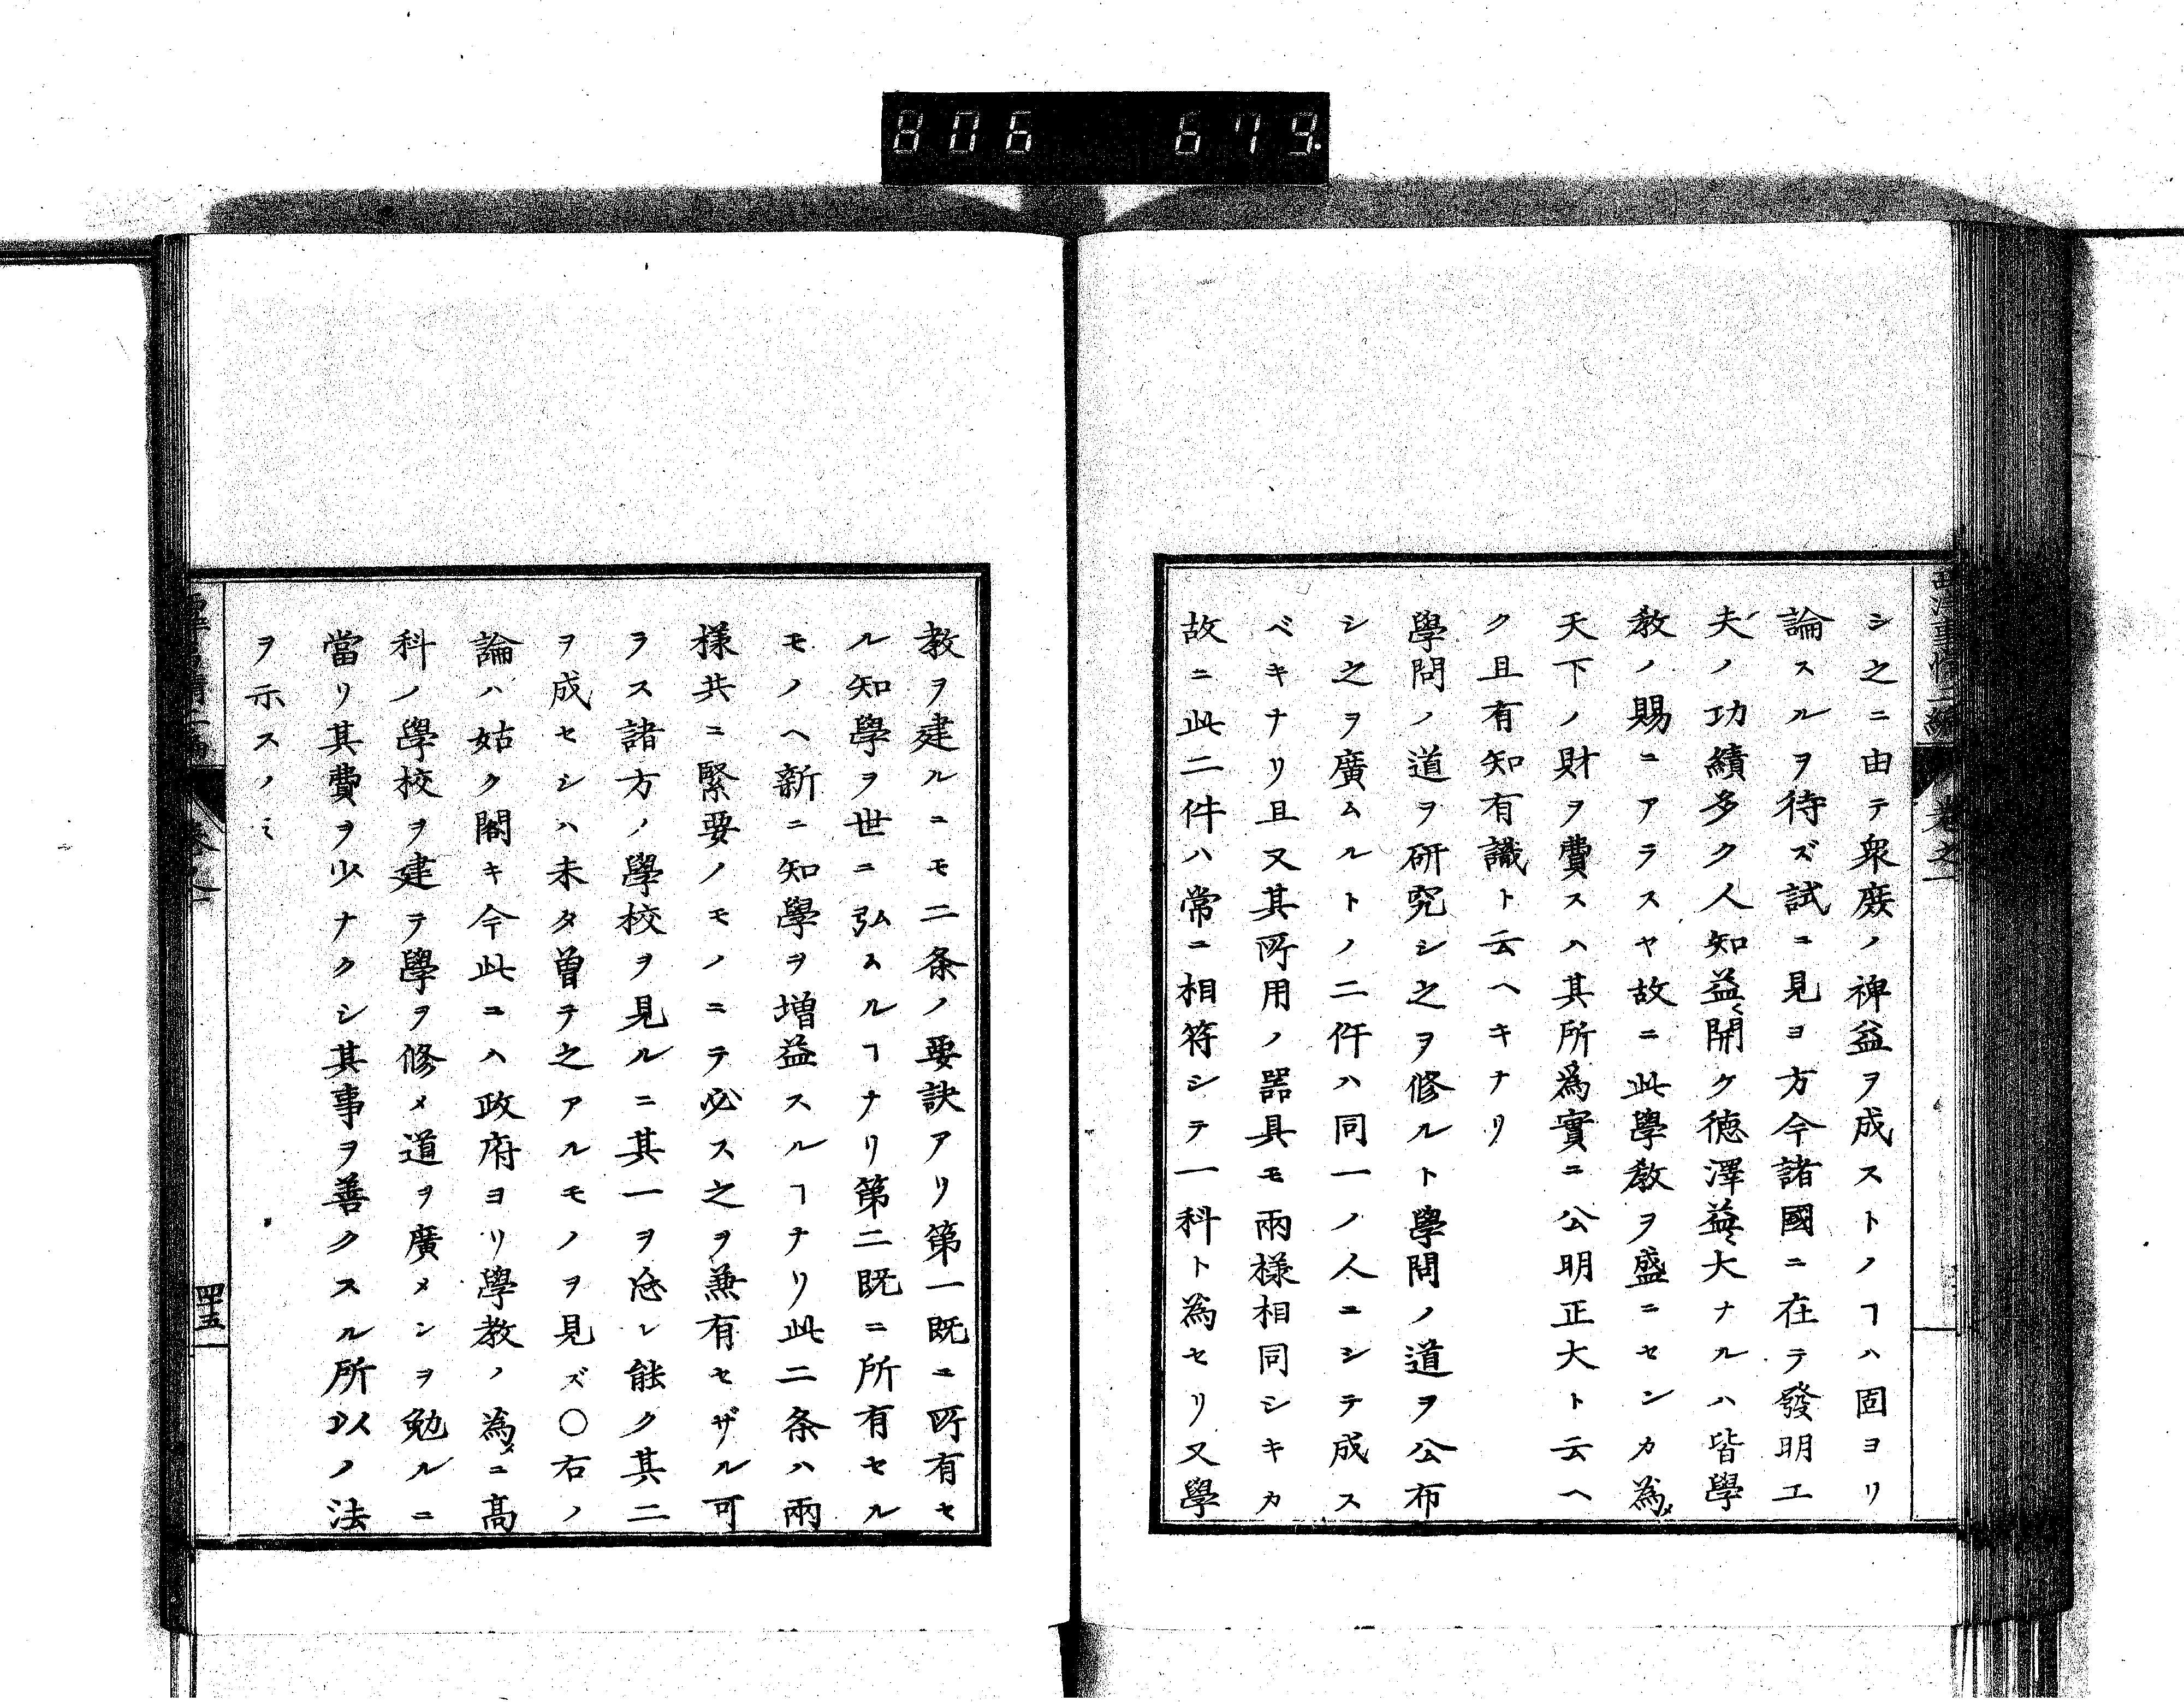 806 679.
西洋事情二編 卷之一
シ之ニ由テ衆庻ノ裨益ヲ成ストノヿハ固ヨリ
論スルヲ待ズ試ニ見ヨ方今諸國ニ在テ發明工
夫ノ功績多ク人知益〻開ク德澤益〻大ナルハ皆學
教ノ賜ニアラスヤ故ニ此學教ヲ盛ニセンカ為メ
天下ノ財ヲ費スハ其所為實ニ公明正大ト云ヘ
ク且有知有識ト云ヘキナリ
學問ノ道ヲ研究シ之ヲ修ルト學問ノ道ヲ公布
シ之ヲ廣ムルトノ二件ハ同一ノ人ニシテ成ス
ベキナリ且又其所用ノ器具モ兩樣相同シキカ
故ニ此二件ハ常ニ相符シテ一科ト為セリ又學
教ヲ建ルニモ二条ノ要訣アリ第一既ニ所有セ
ル知學ヲ世ニ弘ムルヿナリ第二既ニ所有セル
モノヘ新ニ知學ヲ増益スルヿナリ此二条ハ兩
樣共ニ緊要ノモノニテ必ス之ヲ兼有セザル可
ラス諸方ノ學校ヲ見ルニ其一ヲ怠レ能ク其二
ヲ成セシハ未タ曽テ之アルモノヲ見ズ〇右ノ
論ハ姑ク閣キ今此ニハ政府ヨリ學教ノ為メニ高
科ノ學校ヲ建テ學ヲ修メ道ヲ廣メンヲ勉ルニ
當リ其費ヲ少ナクシ其事ヲ善クスル所以ノ法
ヲ示スノミ
四十五